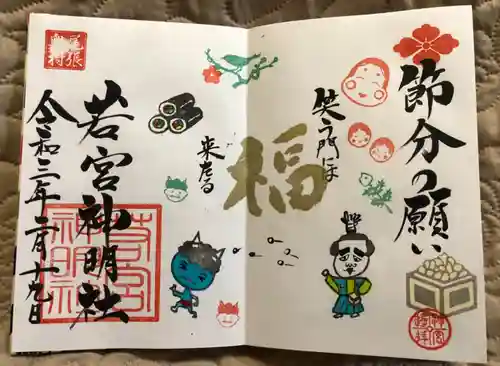 節分の願い
笑う門には
福
来たる
若宮神明社
令和三年二月十九日
尾張
若宮
神明社